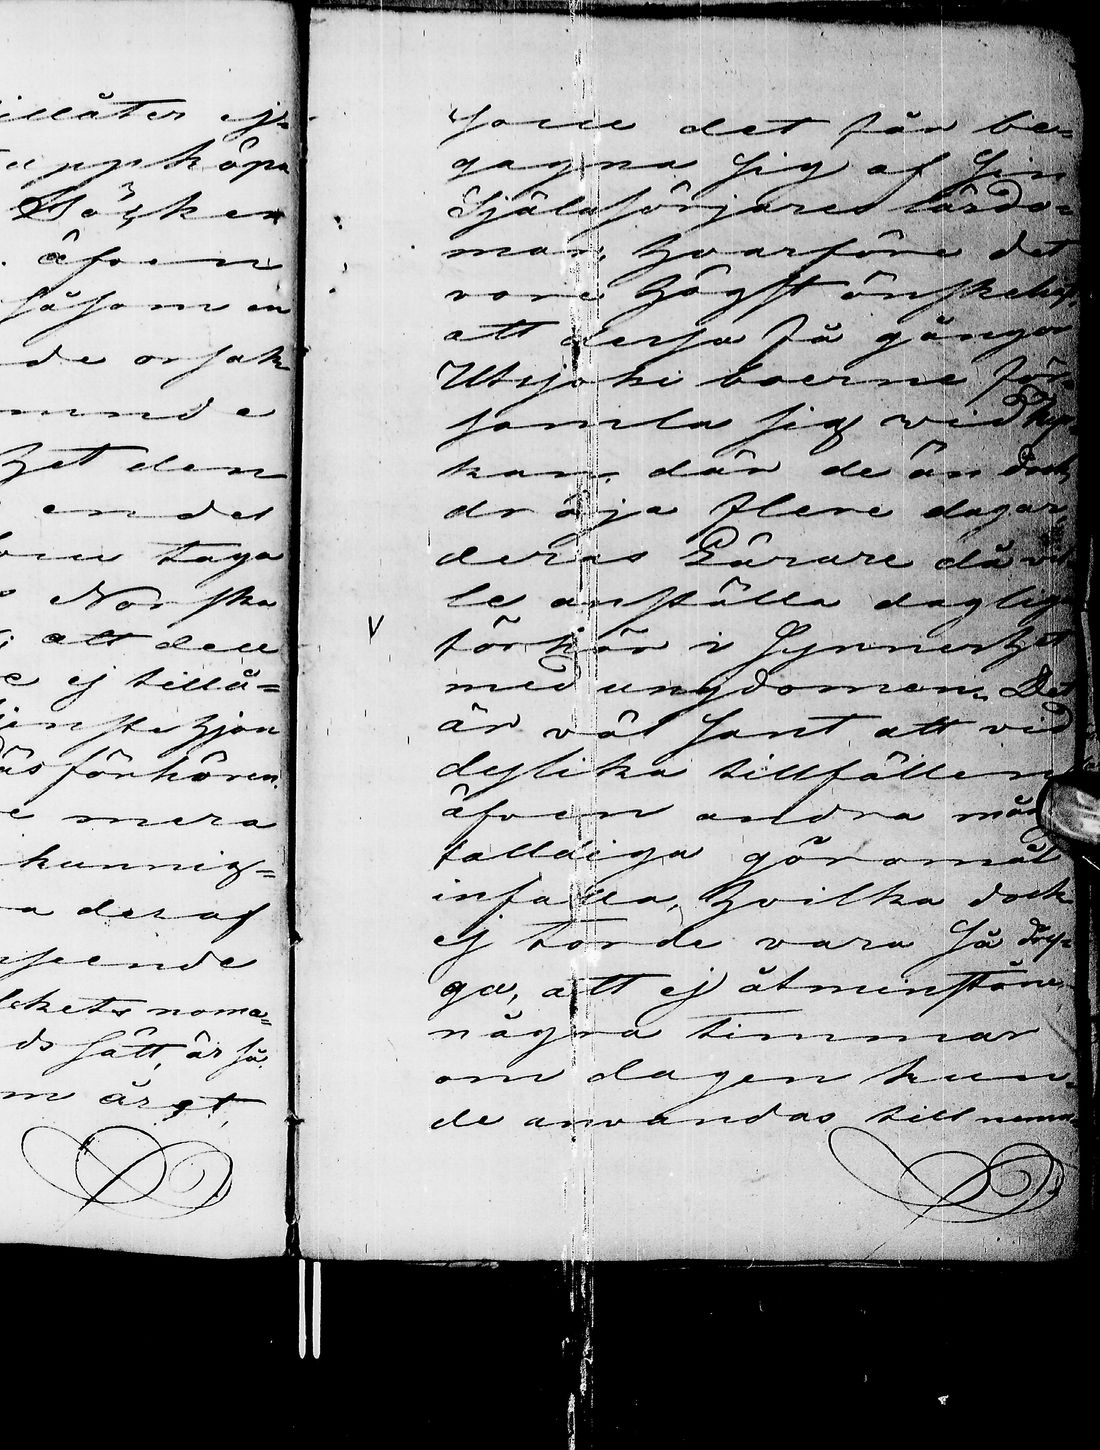 illåter ej=
uppköpa
Böcker
äfven
såsom en
de orsak
ende
het den
endel
taga
Norska
att den
ej tillå=
jenstehjon
ås förhören
mera
kunnig=
a deraf
seende
lkets noma=
ds sätt, är så
m året,
som det får be=
gagna sig af sin
Själasörjares lärdo=
mar, hvarföre det
vore högst önskeligt
att dessa få gånger
Utsjoki boerne för=
samla sig wid kyr=
kan, där de än dock
dröja flere dagar
deras Lärare då vil=
le anställa daglig
förhör i synnerhet
med ungdomen. Det
är väl sant att vid
dylika tillfällen
äfven andra mång
falldiga göromål
infalla, hvilka dock
ej torde vara så dry=
ga, att ej åtminstone
några timmar
om dagen kun=
de användas till nema=